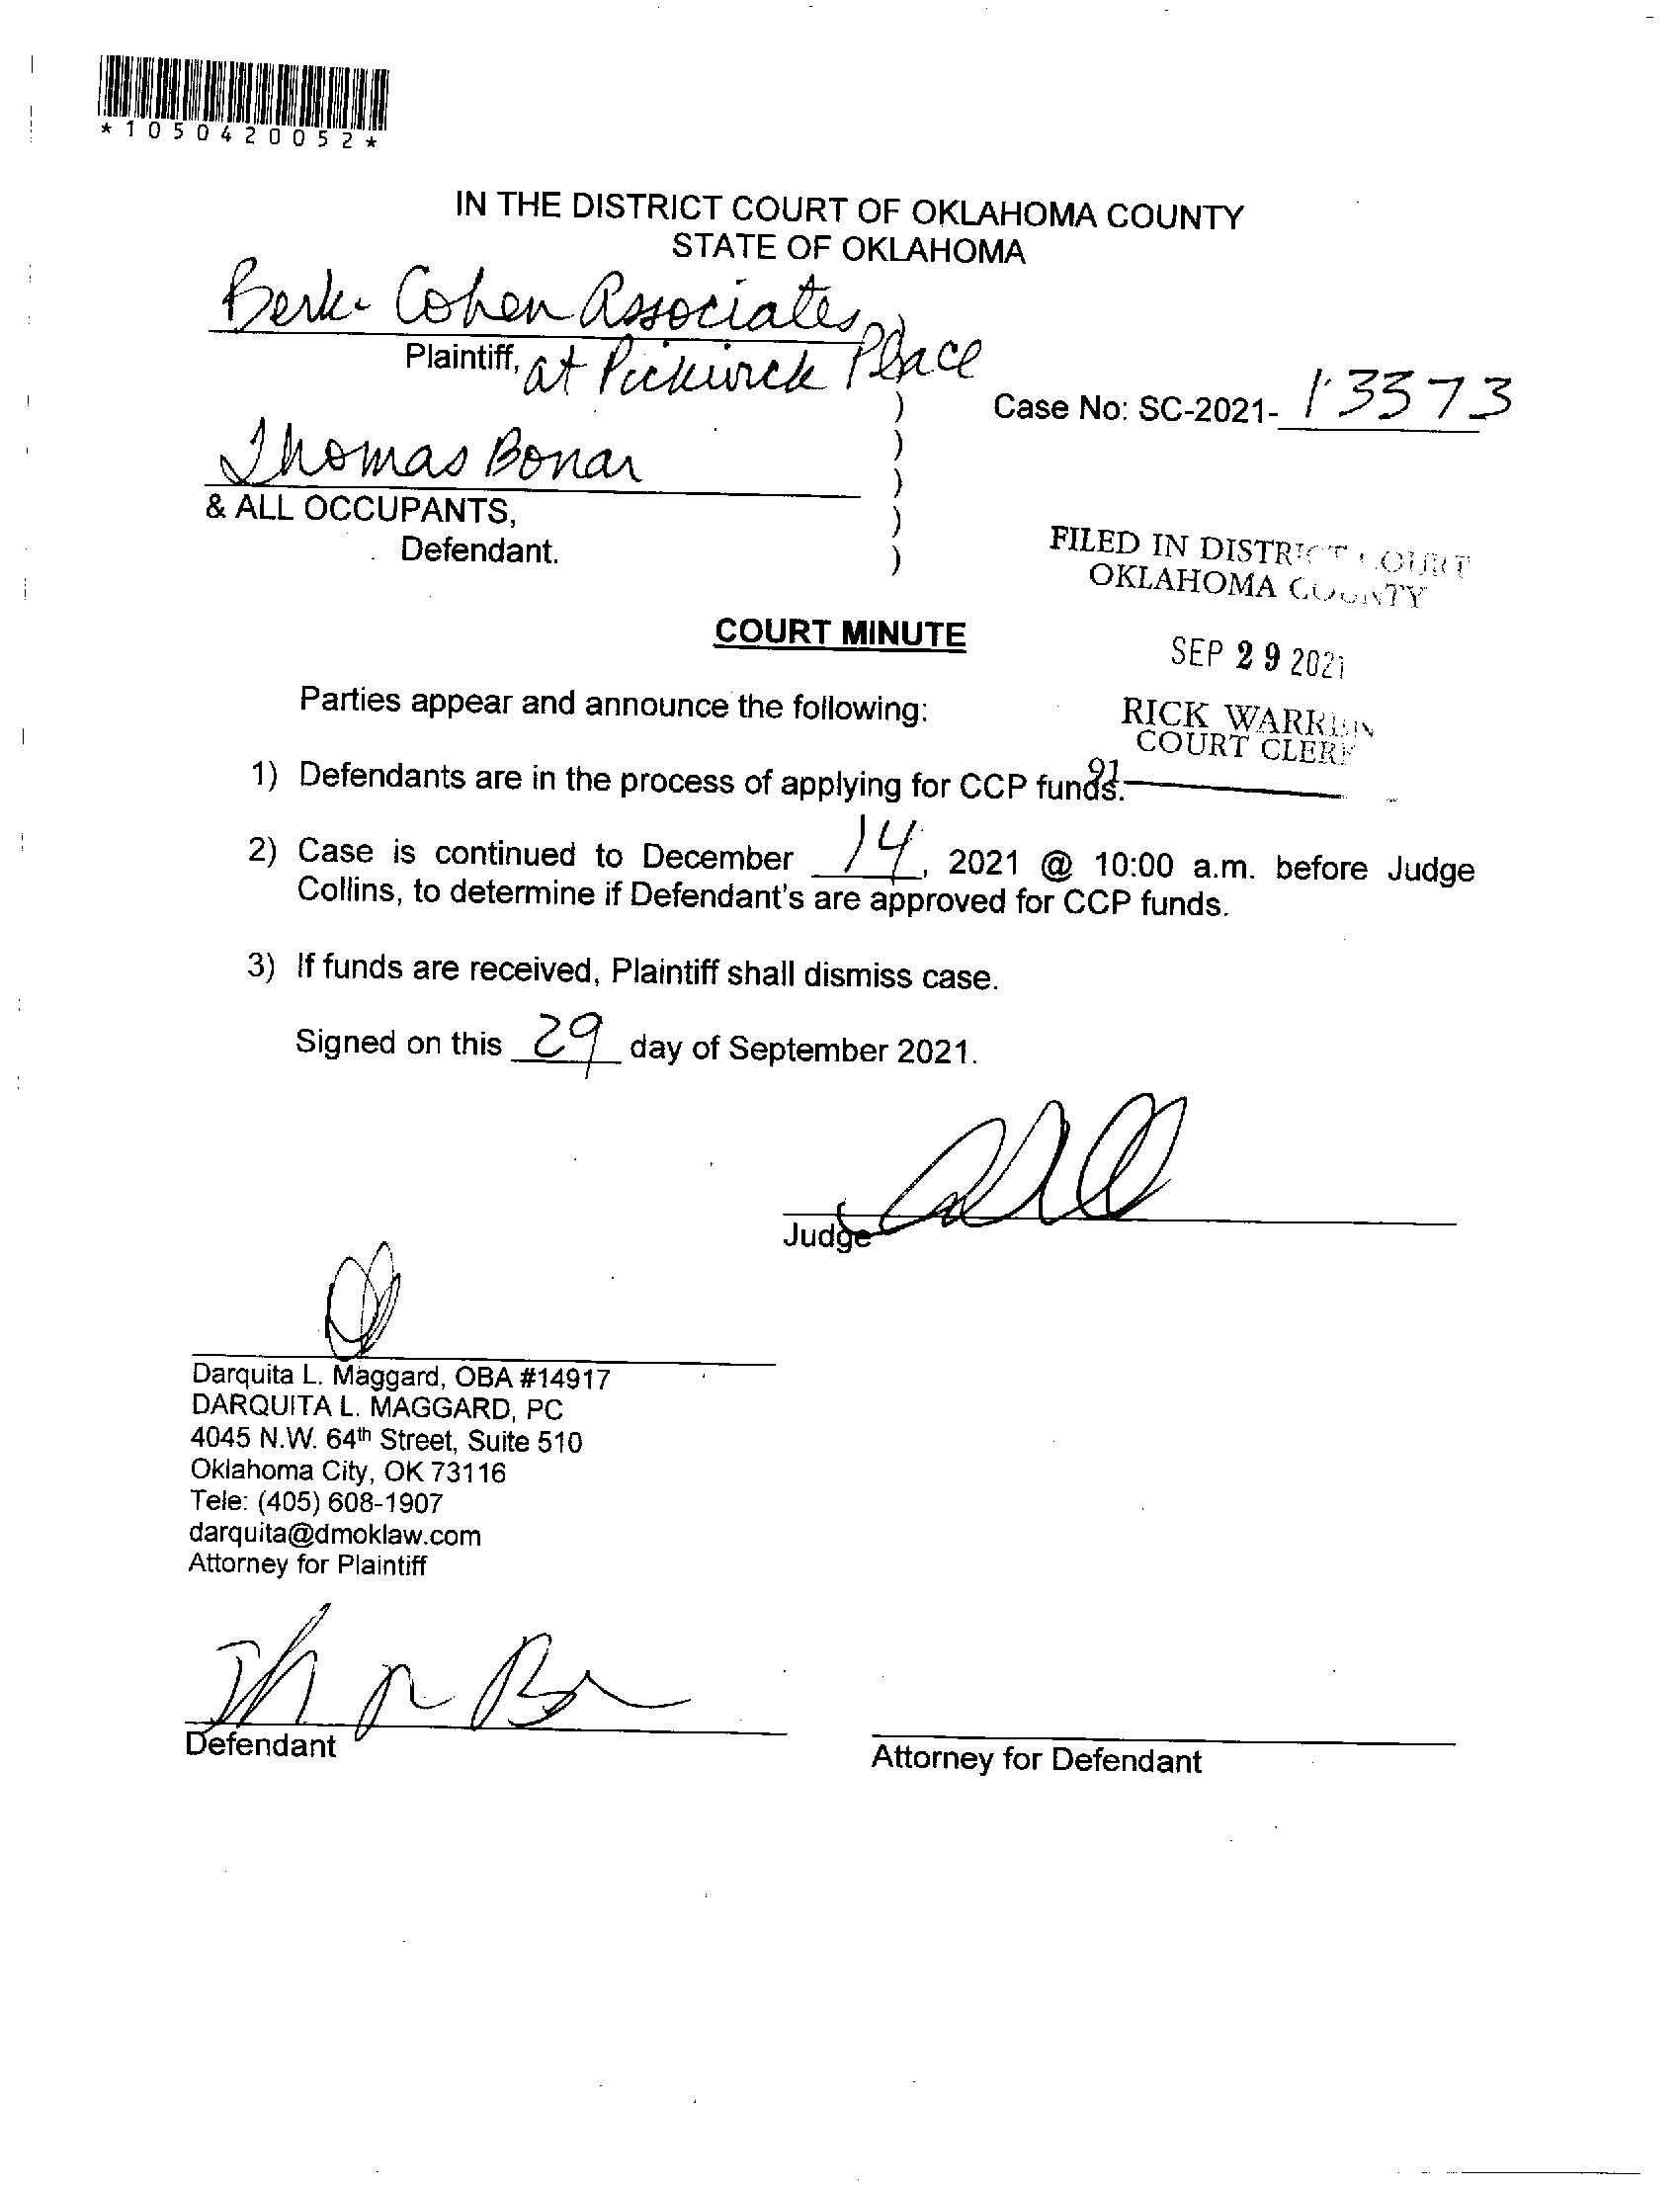 *1050420052*
IN THE DISTRICT COURT OF OKLAHOMA COUNTY
STATE OF OKLAHOMA
Berk-Cohen Associates
Plaintiff, at Pickwick Place
)
Case No: SC-2021- 13373
)
Thomas Bonar
)
& ALL OCCUPANTS,
)
Defendant.
)
FILED IN DISTRICT COURT
OKLAHOMA COUNTY
COURT MINUTE
SEP 29 2021
Parties appear and announce the following:
RICK WARREN
COURT CLERK
91
1) Defendants are in the process of applying for CCP funds.
2) Case is continued to December 14, 2021 @ 10:00 a.m. before Judge
Collins, to determine if Defendant's are approved for CCP funds.
3) If funds are received, Plaintiff shall dismiss case.
Signed on this 29 day of September 2021.
Judge
Darquita L. Maggard, OBA #14917
DARQUITA L. MAGGARD, PC
4045 N.W. 64th Street, Suite 510
Oklahoma City, OK 73116
Tele: (405) 608-1907
darquita@dmoklaw.com
Attorney for Plaintiff
Defendant
Attorney for Defendant